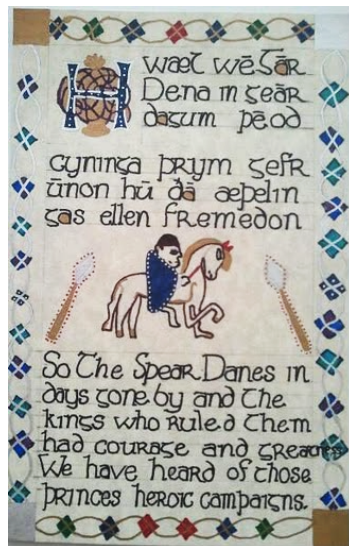 Hwaet wē Gār
Dena in geār
dagum þēod
cyninga þrym gefr
ūnon hū ðā æþelin
gas ellen fremedon
So The Spear Danes in
days gone by and the
kings who ruled them
had courage and greatness
We have heard of those
princes heroic campaigns.